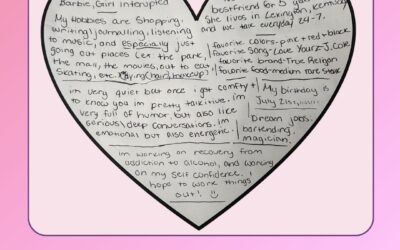 Barbie, Girl interupted
bestfriend for 5 years
My Hobbies are Shopping,
She lives in Lexington, Kentucky
writing/journaling, listening
and we talk everyday 24-7.
to music, and especially just
going out places (ex the park,
the mall, the movies, out to eat,
Skating, etc. Dying (hair/makeup)
favorite colors-pink + red + black
favorite Song-Love Yourz-J.Cole
favorite brand-True Religon
favorite food-medium rare steak
im very quiet but once i got comfty
to know you im pretty talkitive. im
very full of humor but also like
serious/deep conversations. im
emotional but also energetic.
My birthday is
July 21st
Dream jobs:
bartending,
magician.
im working on recovery from
addiction to alcohol, and working
on my self confidence. i
hope to work things
out! :)